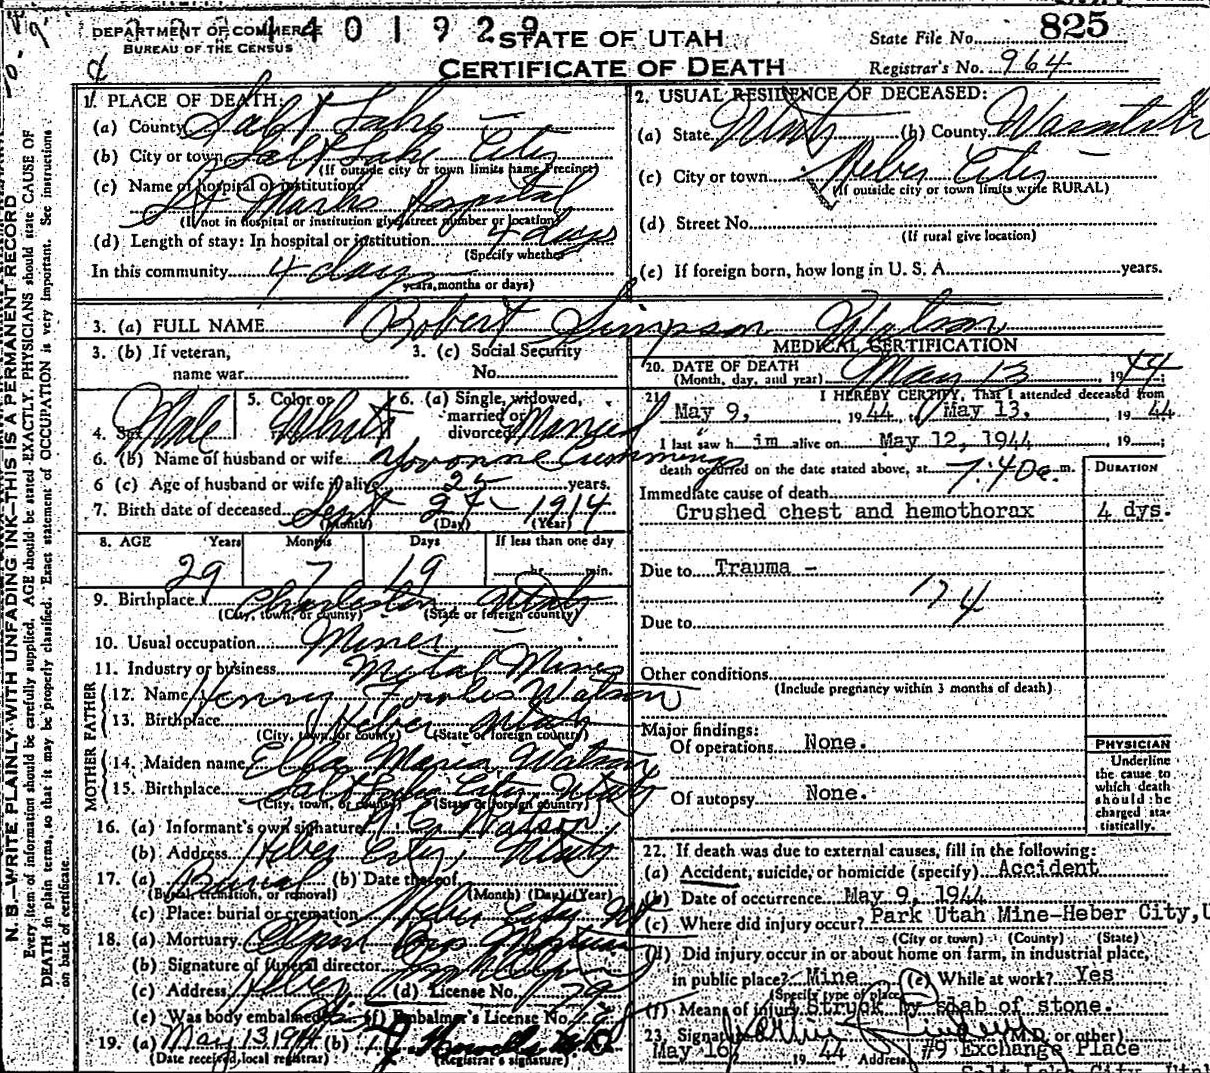 DEPARTMENT OF COMMERCE
BUREAU OF THE CENSUS
STATE OF UTAH
CERTIFICATE OF DEATH
State File No. 825
Registrar's No. 964
N. B.—WRITE PLAINLY WITH UNFADING INK—THIS IS A PERMANENT RECORD
Every item of information should be carefully supplied. AGE should be stated EXACTLY. PHYSICIANS should state CAUSE OF
DEATH in plain terms, so that it may be properly classified. Exact statement of OCCUPATION is very important. See instructions
on back of certificate.
1. PLACE OF DEATH:
(a) County Salt Lake
(b) City or town Salt Lake City
(If outside city or town limits name Precinct)
(c) Name of hospital or institution:
St Marks Hospital
(If not in hospital or institution give street number or location)
(d) Length of stay: In hospital or institution 4 days
(Specify whether
In this community 4 days
years, months or days)
2. USUAL RESIDENCE OF DECEASED:
(a) State Utah (b) County Wasatch
(c) City or town Heber City
(If outside city or town limits write RURAL)
(d) Street No.
(If rural give location)
(e) If foreign born, how long in U. S. A. years.
3. (a) FULL NAME Robert Simpson Watson
3. (b) If veteran, name war
3. (c) Social Security No.
4. Sex Male 5. Color or White 6. (a) Single, widowed, married or divorced Married
6. (b) Name of husband or wife Yvonne Cummings
6 (c) Age of husband or wife if alive 25 years.
7. Birth date of deceased Sept 24 - 1914
(Month) (Day) (Year)
8. AGE Years Months Days If less than one day
29 7 19 hr. min.
9. Birthplace Charleston Utah
(City, town, or county) (State or foreign country)
10. Usual occupation Miner
11. Industry or business Metal Mines
FATHER
12. Name Henry Fowles Watson
13. Birthplace Heber Utah
(City, town, or county) (State or foreign country)
MOTHER
14. Maiden name Maria Watson
15. Birthplace Salt Lake City Utah
(City, town, or county) (State or foreign country)
16. (a) Informant's own signature Watson
(b) Address Heber City, Utah
17. (a) Burial (b) Date thereof
(Burial, cremation, or removal) (Month) (Day) (Year)
(c) Place: burial or cremation Heber City Ut
18. (a) Mortuary Olpin Mortuary
(b) Signature of funeral director Olpin
(c) Address Heber (d) License No. 79
(e) Was body embalmed (f) Embalmer's License No.
19. (a) May 13 1944 (b)
(Date received, local registrar) (Registrar's signature)
MEDICAL CERTIFICATION
20. DATE OF DEATH
(Month, day, and year) May 13, 1944;
21. I HEREBY CERTIFY, That I attended deceased from
May 9, 1944 May 13, 1944
I last saw h im alive on May 12, 1944 19 ;
death occurred on the date stated above, at 7:40 a. m.
DURATION
Immediate cause of death
Crushed chest and hemothorax 4 dys.
Due to Trauma -
174
Due to
Other conditions
(Include pregnancy within 3 months of death)
Major findings:
Of operations None.
Of autopsy None.
PHYSICIAN
Underline
the cause to
which death
should be
charged sta-
tistically.
22. If death was due to external causes, fill in the following:
(a) Accident, suicide, or homicide (specify) Accident
(b) Date of occurrence May 9, 1944
(c) Where did injury occur? Park Utah Mine-Heber City, U
(City or town) (County) (State)
(d) Did injury occur in or about home on farm, in industrial place,
in public place? Mine (e) While at work? Yes
(Specify type of place)
(f) Means of injury Struck by slab of stone.
23. Signature (M.D. or other)
May 16, 1944 Address #9 Exchange Place
Salt Lake City, Utah